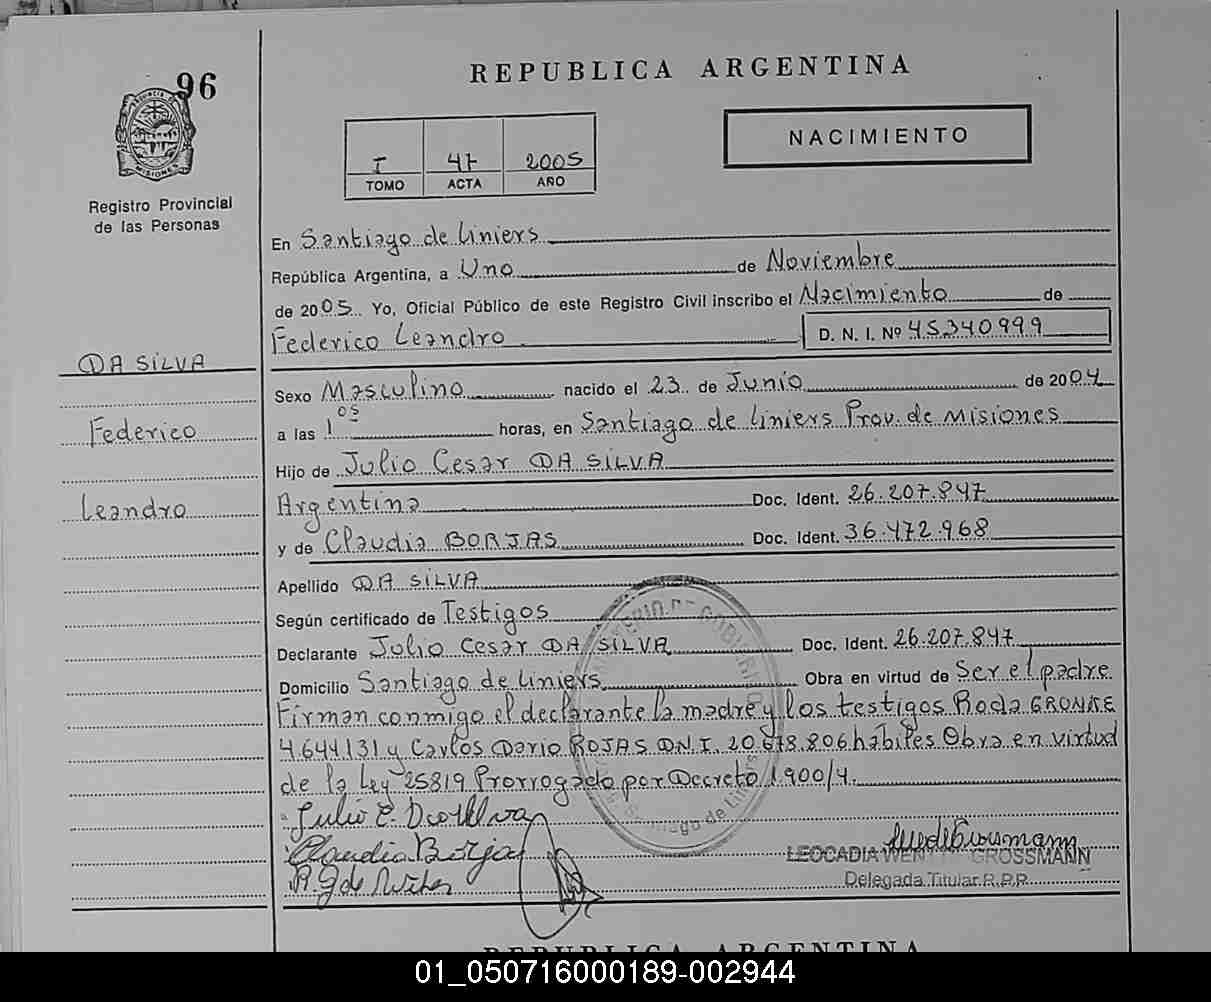 96
REPUBLICA ARGENTINA
NACIMIENTO
I 47 2005
TOMO ACTA AÑO
PROVINCIA DE MISIONES
Registro Provincial
de las Personas
En Santiago de Liniers
República Argentina, a Uno de Noviembre
de 2005. Yo, Oficial Público de este Registro Civil inscribo el Nacimiento de
Federico Leandro D. N. I. Nº 45340999
DA SILVA
Federico
Leandro
Sexo Masculino nacido el 23 de Junio de 2004
a las 1 05 horas, en Santiago de Liniers Prov. de Misiones
Hijo de Julio Cesar DA SILVA
Argentina Doc. Ident. 26.207.847
y de Claudia BORJAS Doc. Ident. 36.472.968
Apellido DA SILVA
Según certificado de Testigos
Declarante Julio Cesar DA SILVA Doc. Ident. 26.207.847
Domicilio Santiago de Liniers Obra en virtud de Ser el padre
Firman conmigo el declarante la madre y los testigos Roda
4644131 y Carlos Dario ROJAS D.N.I. 20.678.806 habiles Obra en virtud
de la Ley 25819 Prorrogado por Decreto 1.900/4.
Claudia Borja
LEOCADIA GROSSMANN
Delegada Titular R.P.P.
REPUBLICA ARGENTINA
01_050716000189-002944